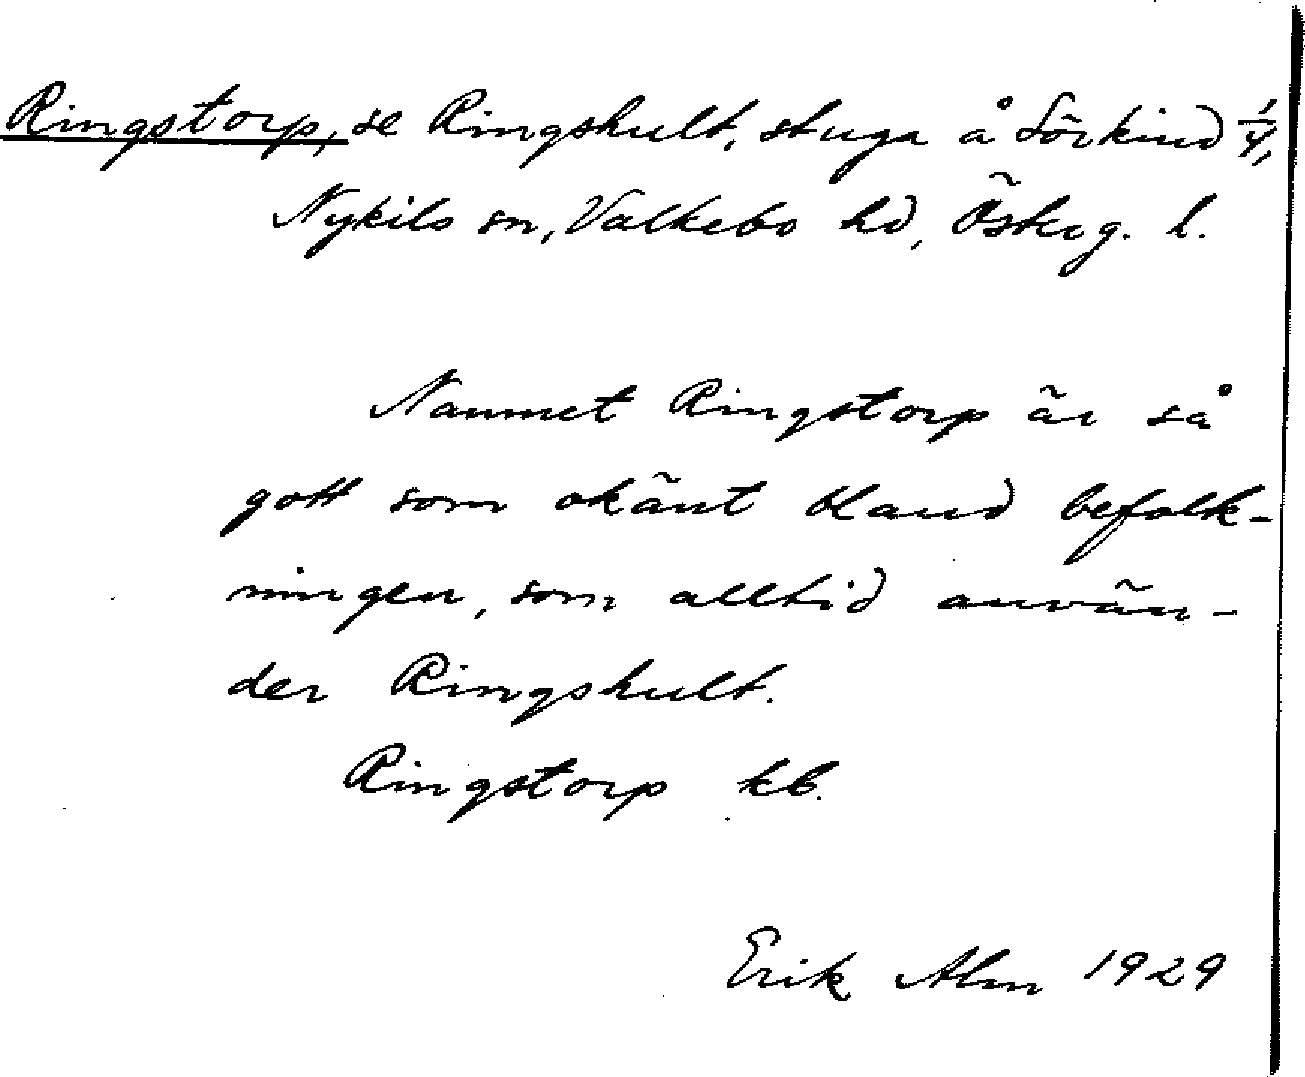 Ringstorp, se Ringshult, stuga å Sörkind 1/4,
Nykils sn, Valkebo hd, Österg. l.
Namnet Ringstorp är så
gott som okänt bland befolk-
ningen, som alltid använ-
der Ringshult.
Ringstorp kb.
Erik Alm 1929